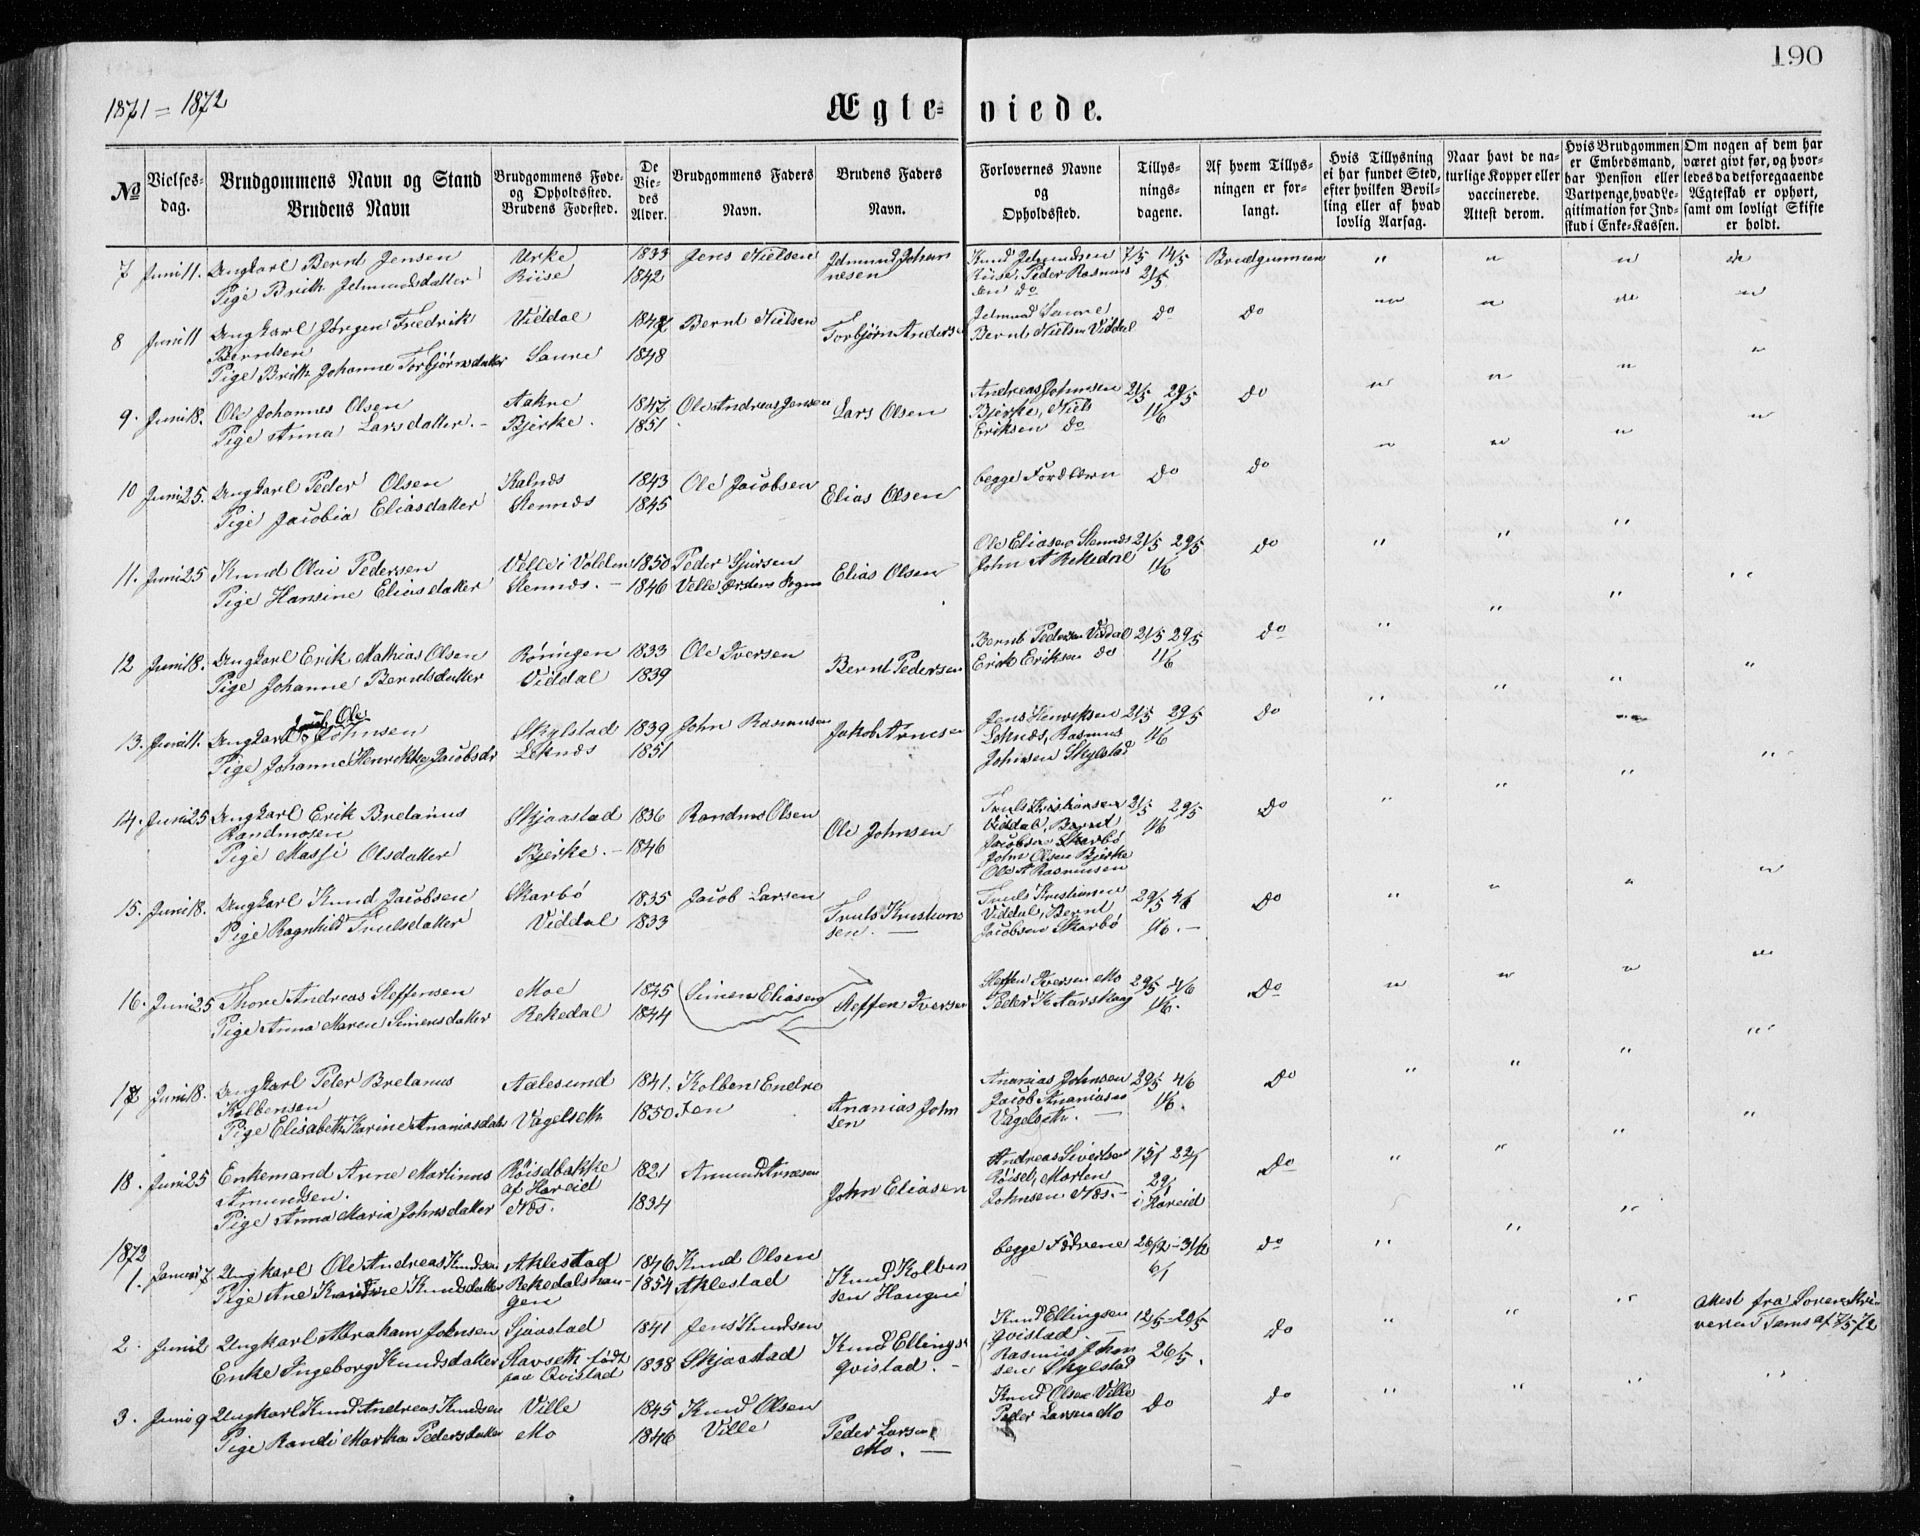 190
1871 = 1872
Ægteviede.
No
Vielses-dag.
Brudgommens Navn og Stand
Brudens Navn
Brudgommens Føde- og Opholdssted.
Brudens Fødested.
De Viedes Alder.
Brudgommens Faders Navn.
Brudens Faders Navn.
Forlovernes Navne og Opholdssted.
Tillysningsdagene.
Af hvem Tillysningen er forlangt.
Hvis Tillysning ei har fundet Sted, efter hvilken Bevilling eller af hvad lovlig Aarsag.
Naar havt de naturlige Kopper eller vaccinerede. Attest derom.
Hvis Brudgommen er Embedsmand, har Pension eller Vartpenge, hvad Legitimation for Indskud i Enke-Kassen.
Om nogen af dem har været givt før, og hvorledes da det foregaaende Ægteskab er ophørt, samt om lovligt Skifte er holdt.
7 Juni 11. Ungkarl Bernt Jensen Urke 1833 Jens Nielsen Jetmund Johannesen Knud Jetmundsen 7/5 14/5 Brudgummen " " " "
Pige Brith Jetmundsdatter Riise 1842 Riise, Peder Rasmussen do 21/5
8 Juni 11 Ungkarl Jørgen Fredrik Viddal 1847 Bernt Nielsen Torbjørn Anders Jetmund Saure, do do " " " "
Berntsen
Pige Brith Johanne Torbjørnsdatter Saure 1848 Bernt Nielsen Viddal
9. Juni 18. Ole Johannes Olsen Aakre 1847 Ole Andreas Jensen Lars Olsen Andreas Johnsen 21/5 29/5 do " " " "
Pige Anna Larsdatter. - Bjerke. 1851 Bjerke, Niels Eriksen do 11/6
10 Juni 25. Ungkarl Peder Olsen Kalnæs 1843 Ole Jacobsen Elias Olsen begge Forældern do do " " " "
Pige Jacobia Eliasdatter Stennæs 1845
11. Juni 25 Knud Olai Pedersen Velle i Volden 1850 Peder Sjursen Elias Olsen Ole Eliasen Stennæs 21/5 29/5 do " " " "
Pige Hansine Eliasdatter Stennæs. - 1846 Velle Ørstens Sogn John A Rekedal 11/6
12 Juni 18. Ungkarl Erik Mathias Olsen Røningen 1833 Ole Iversen Bernt Pedersen Bernt Pedersen Viddal 21/5 29/5 do " " " "
Pige Johanne Berntsdatter Viddal 1839 Erik Eriksen do 11/6
13. Juni 11. Ungkarl Ole Johnsen Skylstad 1839 John Rasmusen Jakob Arnesen Jens Henriksen 21/5 29/5 do " " " "
Pige Johanne Henrikke Jacobsdr Leknæs 1851 Leknæs, Rasmus Johnsen Skylstad 11/6
14. Juni 25 Ungkarl Erik Bretanus Skjaastad 1836 Randmos Olsen Ole Johnsen Truls Kristiansen 21/5 29/5 do " " " "
Randmosen Viddal, Bernt 11/6
Pige Massi Olsdatter Bjerke. - 1846 Jacobsen Skarbø
John Olsen Bjerke
Ole A Rasmusen
15. Juni 18. Ungkarl Knud Jacobsen Skarbø 1835 Jacob Larsen Truls Kristiansen. Truls Kristiansen 29/5 4/6 do " " " "
Pige Ragnhild Trulsdatter Viddal 1833 Viddal, Bernt Jacobsen Skarbø 11/6. -
16. Juni 25 Thore Andreas Steffensen Moe 1845 Simen Eliasen Steffen Iversen Steffen Iversen Mo 29/5 4/6 do " " " "
Pige Anna Maren Simensdatter Rekedal 1844 Peder K Aarskog 11/6.
17 Juni 18. Ungkarl Peter Bretanus Aalesund 1841. Kolben Endresen Ananias Johnsen Ananias Johnsen 29/5 4/6 do " " " "
Kolbensen Jacob Ananiasen 11/6.
Pige Elisabeth Karine Ananiasdatr Vagelseth 1850 Vagelseth. -
18. Juni 25 Enkemand Arne Martinus Røisetbakke 1821 Amund Arnesen John Eliasen Andreas Sivertsen 15/1 22/1 do " " " "
Amundsen. af Hareid Røiset, Morten 29/1
Pige Anna Maria Johnsdatter Næs. 1834 Johnsen Næs. - i Hareid
1872
1. Januar 7 Ungkarl Ole Andreas Knudsen Aklestad 1846 Knud Olsen Knud Kolbensen Haugen begge Fædrene 26/12 - 31/12 do " " "
Pige Ane Karine Knudsdatter Rekedalshaugen 1854 Aklestad 6/1
2. Juni 2 Ungkarl Abraham Johnsen Sjaastad 1841 Jens Knudsen Knud Ellings. Knud Ellingsen 12/5 - 20/5 do " " " Attest fra Sorenskriveren Sams af 7/5 72
Enke Ingeborg Knudsdatter Ravseth født paa Qvistad 1838 Skjaastad Qvistad. - Qvistad. Rasmus Johnsen Skylstad 26/5.
3. Juni 9 Ungkarl Knud Andreas Knudsen Ville 1845 Knud Olsen Peder Larsen Knud Olsen Ville do do " " " "
Pige Randi Martha Pedersdatter Mo 1846 Ville Mo. - Peder Larsen Mo